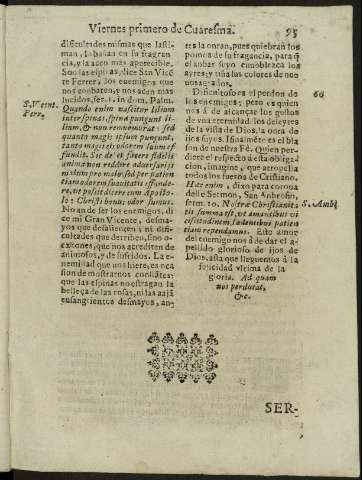 Viernes primero de Cuaresma. 95
dificultades mismas que lasti-
man, la bañan en su fragran-
cia, y la acen mas apetecible.
Son las espinas, dice San Vicẽ
S. Vicent. te Ferrer, los enemigos que
Ferr. nos conbaten, y nos acen mas
lucidos, ser. 1. in dom. Palm.
Quando enim nascitur lilium
inter spinas, spina pungunt li-
lium, & non removeatur: sed
quanto magis ipsum pungunt,
tanto magis eius odorem suum ef-
fundit. Sic de et sincere fidelis
anima non reddere adversarijs
malum pro malo, sed per patien
tiam odorem suavitatis effunde-
re, ut posit dicere cum Aposto-
lo: Christi bonus odor sumus.
No an de ser los enemigos, di-
ce mi Gran Vicente, desma-
yos que desalienten, ni difi-
cultades que derriben, sino o-
caxiones, que nos acrediten de
animosos, y de sufridos. La e-
nemistad que nos hiere, es oca
sion de mostrarnos constãtes:
que las espinas no estragan la
belleça de las rosas, ni las aajã
ensangrientos desmayos, an-
tes la onran, pues quiebran los
pomos de su fragancia, para q̃
el anbar suyo ennoblezca los
ayres; y usa las colores de nue
vos realços.
Dificultoso es el perdon de 60
los enemigos; pero es quien
nos à de alcançar los gustos
de una eternidad, los deleytes
de la vista de Dios, la onra de
ijos suyos. Finalmente es el bla
son de nuestra Fè. Quien per-
diere el respecto à esta obliga
cion, imagine, que atropella
todos los fueros de Cristiano,
Hæc enim, dixo para corona
de lle Sermon, San Anbrosio, S. Ambr.
serm. 10. Nostra Christianis-
tis summa est, ut amantibus vi
cissitudinem, lædentibus patien
tiam rependamus. Este amor
del enemigo nos à de dar el a-
pellido glorioso de ijos de
Dios, asta que lleguemos à la
felicidad ultima de la
gloria. Ad quam
nos perducat,
&c.
SER-